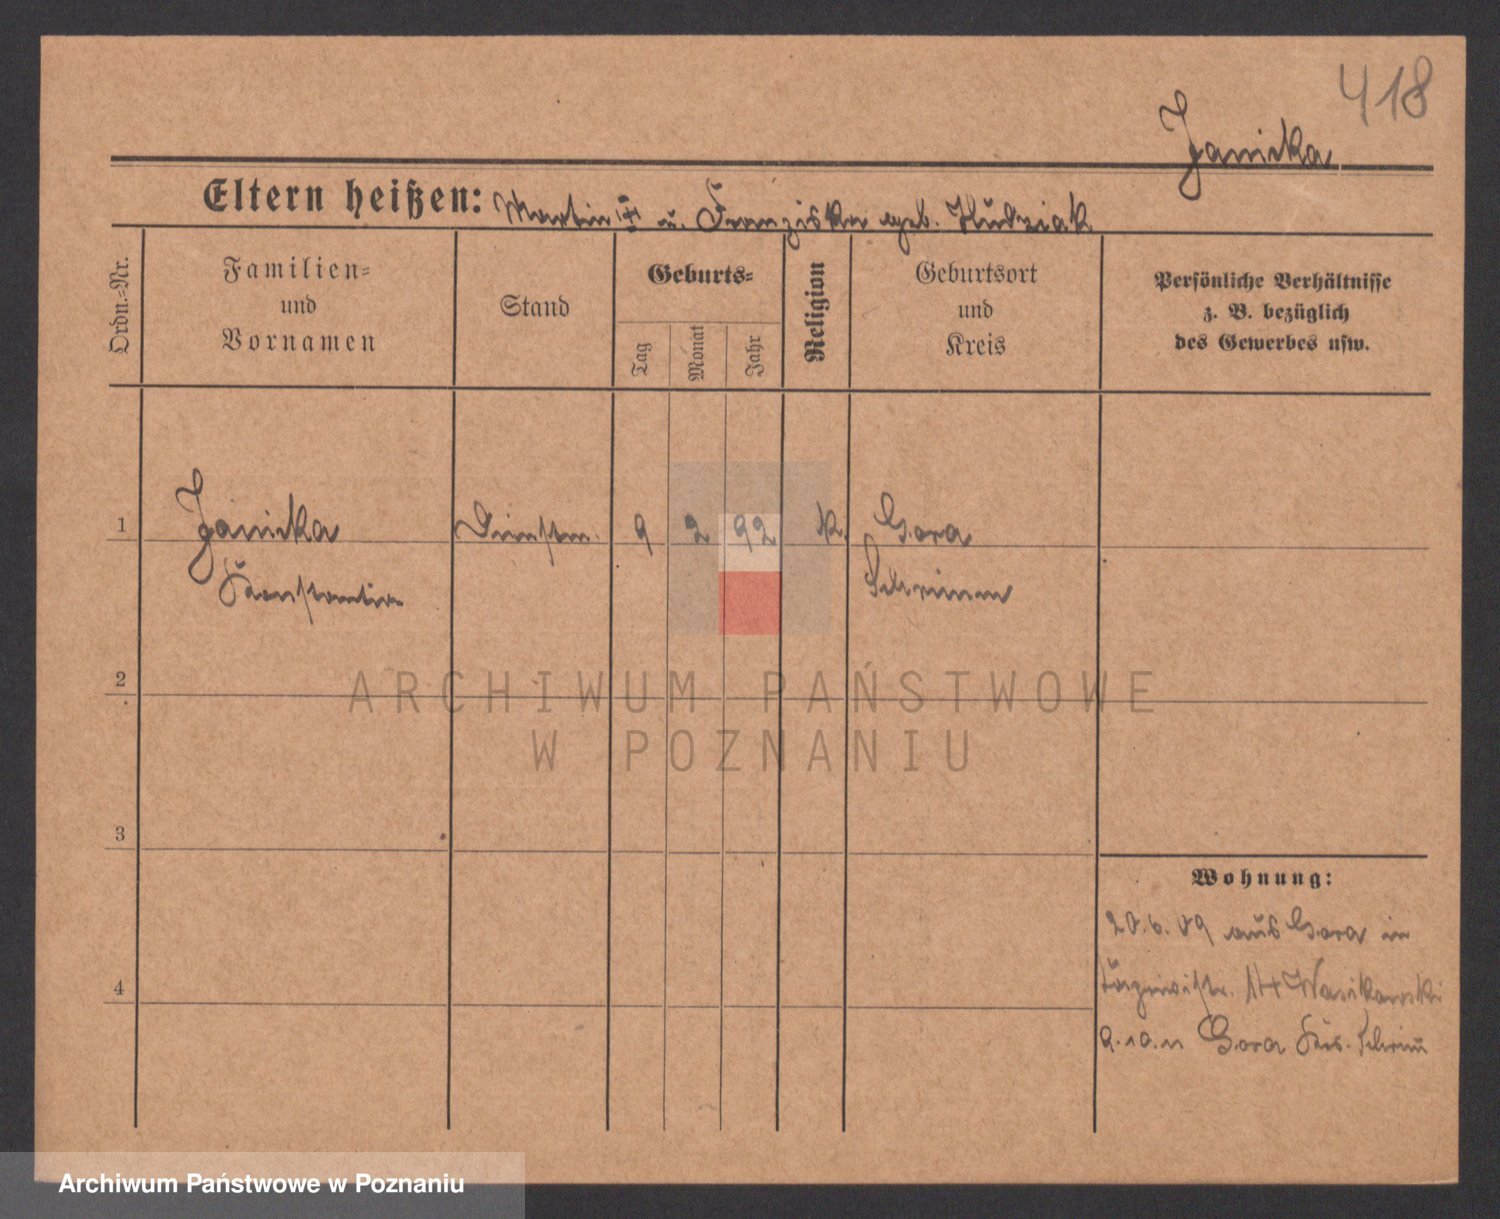 418
Janicka
Eltern heißen: Martin ‡ u. Franziska geb. Hudziak
Ordn.-Nr.
Familien-
und
Vornamen
Stand
Geburts-
Tag
Monat
Jahr
Religion
Geburtsort
und
Kreis
Persönliche Verhältnisse
z. B. bezüglich
des Gewerbes usw.
1 Janicka 9 2 92 k. Gora
Schrimm
2
3
4
ARCHIWUM PAŃSTWOWE
W POZNANIU
Wohnung:
20.6.09 aus Gora in
14
9.10.11 Gora Krs. Schrim̄
Archiwum Państwowe w Poznaniu